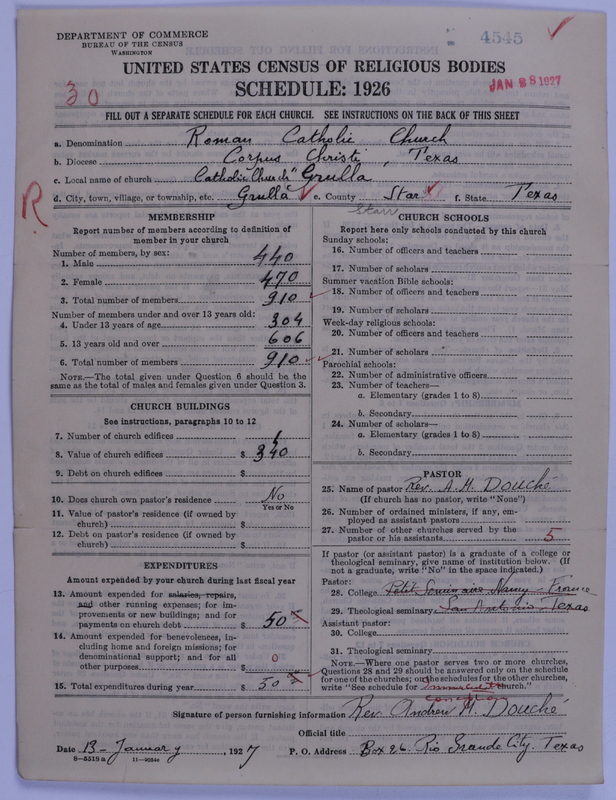 DEPARTMENT OF COMMERCE
BUREAU OF THE CENSUS
WASHINGTON
4545
UNITED STATES CENSUS OF RELIGIOUS BODIES
SCHEDULE: 1926
JAN 28 1927
30
FILL OUT A SEPARATE SCHEDULE FOR EACH CHURCH. SEE INSTRUCTIONS ON THE BACK OF THIS SHEET
a. Denomination Roman Catholic Church
b. Diocese Corpus Christi, Texas
c. Local name of church Catholic "Church" Grulla
d. City, town, village, or township, etc. Grulla e. County Star f. State Texas
R
Starr
MEMBERSHIP
Report number of members according to definition of member in your church
Number of members, by sex:
1. Male 440
2. Female 470
3. Total number of members 910
Number of members under and over 13 years old:
4. Under 13 years of age 304
5. 13 years old and over 606
6. Total number of members 910
NOTE.—The total given under Question 6 should be the same as the total of males and females given under Question 3.
CHURCH BUILDINGS
See instructions, paragraphs 10 to 12
7. Number of church edifices 1
8. Value of church edifices $ 340
9. Debt on church edifices $
10. Does church own pastor's residence No
Yes or No
11. Value of pastor's residence (if owned by church) $
12. Debt on pastor's residence (if owned by church) $
EXPENDITURES
Amount expended by your church during last fiscal year
13. Amount expended for salaries, repairs, and other running expenses; for improvements or new buildings; and for payments on church debt $ 50
14. Amount expended for benevolences, including home and foreign missions; for denominational support; and for all other purposes $ 0
15. Total expenditures during year $ 50
CHURCH SCHOOLS
Report here only schools conducted by this church
Sunday schools:
16. Number of officers and teachers
17. Number of scholars
Summer vacation Bible schools:
18. Number of officers and teachers
19. Number of scholars
Week-day religious schools:
20. Number of officers and teachers
21. Number of scholars
Parochial schools:
22. Number of administrative officers
23. Number of teachers—
a. Elementary (grades 1 to 8)
b. Secondary
24. Number of scholars—
a. Elementary (grades 1 to 8)
b. Secondary
PASTOR
25. Name of pastor Rev. A. H. Douché
(If church has no pastor, write "None")
26. Number of ordained ministers, if any, employed as assistant pastors
27. Number of other churches served by the pastor or his assistants 5
If pastor (or assistant pastor) is a graduate of a college or theological seminary, give name of institution below. (If not a graduate, write "No" in the space indicated.)
Pastor:
28. College Petit Seminaire Nancy France
29. Theological seminary San Antonio Texas
Assistant pastor:
30. College
31. Theological seminary
NOTE.—Where one pastor serves two or more churches, Questions 28 and 29 should be answered only on the schedule for one of the churches; on the schedules for the other churches, write "See schedule for Immaculate church."
Conception
Signature of person furnishing information Rev. Andrew H. Douché
Official title
Date 13 - January, 1927 P. O. Address Box 26. Rio Grande City. Texas
8-5319a 11-9934a